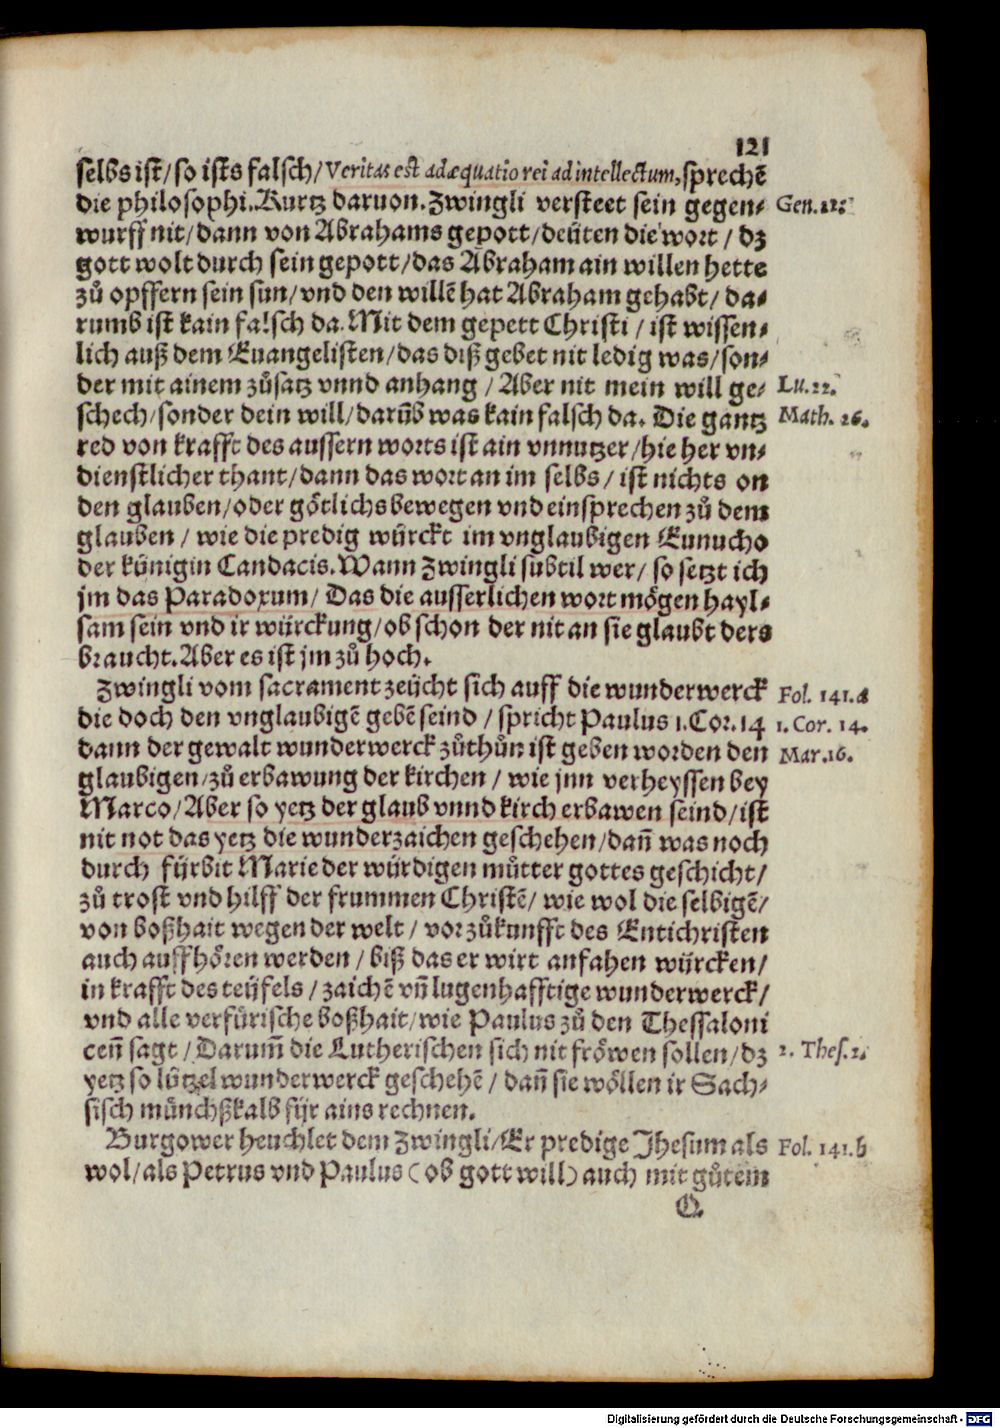 121
selbs ist/ so ists falsch/ Veritas est adæquatio rei ad intellectum, sprechẽ
die philosophi. Kurtz daruon. Zwingli versteet sein gegen⸗ Gen. 22.
wurff nit/ dann von Abrahams gepott/ deüten die wort / dz
gott wolt durch sein gepott/ das Abraham ain willen hette
zů opffern sein sun/ vnd den willẽ hat Abraham gehabt/ da⸗
rumb ist kain falsch da. Mit dem gepett Christi / ist wissen⸗
lich auß dem Euangelisten/ das diß gebet nit ledig was/ son⸗
der mit ainem zůsatz vnnd anhang / Aber nit mein will ge⸗ Lu. 22.
schech/ sonder dein will/ darũb was kain falsch da. Die gantz Math. 26.
red von krafft des aussern worts ist ain vnnutzer/ hie her vn⸗
dienstlicher thant/ dann das wort an im selbs / ist nichts on
den glauben/ oder götlichs bewegen vnd einsprechen zů dem
glauben / wie die predig würckt im vnglaubigen Eunucho
der künigin Candacis. Wann Zwingli subtil wer/ so setzt ich
jm das Paradoxum/ Das die ausserlichen wort mögen hayl⸗
sam sein vnd ir würckung/ ob schon der nit an sie glaubt ders
braucht. Aber es ist jm zů hoch.
Zwingli vom sacrament zeücht sich auff die wunderwerck Fol. 141.a
die doch den vnglaubigẽ gebẽ seind / spricht Paulus 1. Cor. 14 1. Cor. 14.
dann der gewalt wunderwerck zůthůn ist geben worden den Mar. 16.
glaubigen/ zů erbawung der kirchen / wie jnn verheyssen bey
Marco/ Aber so yetz der glaub vnnd kirch erbawen seind/ ist
nit not das yetz die wunderzaichen geschehen/ dañ was noch
durch fürbit Marie der würdigen můtter gottes geschicht/
zů trost vnd hilff der frummen Christẽ/ wie wol die selbigẽ/
von boßhait wegen der welt / vor zůkunfft des Entichristen
auch auffhören werden / biß das er wirt anfahen würcken/
in krafft des teüfels / zaichẽ vñ lugenhafftige wunderwerck/
vnd alle verfürische boßhait/ wie Paulus zů den Thessaloni
ceñ sagt / Darum̃ die Lutherischen sich nit fröwen sollen/ dz 2. Thes. 2.
yetz so lützel wunderwerck geschehẽ / dañ sie wöllen ir Sach⸗
sisch münchßkalb für ains rechnen.
Burgower heuchlet dem Zwingli/ Er predige Jhesum als Fol. 141.b
wol/ als Petrus vnd Paulus (ob gott will) auch mit gůtem
Q
Digitalisierung gefördert durch die Deutsche Forschungsgemeinschaft - DFG